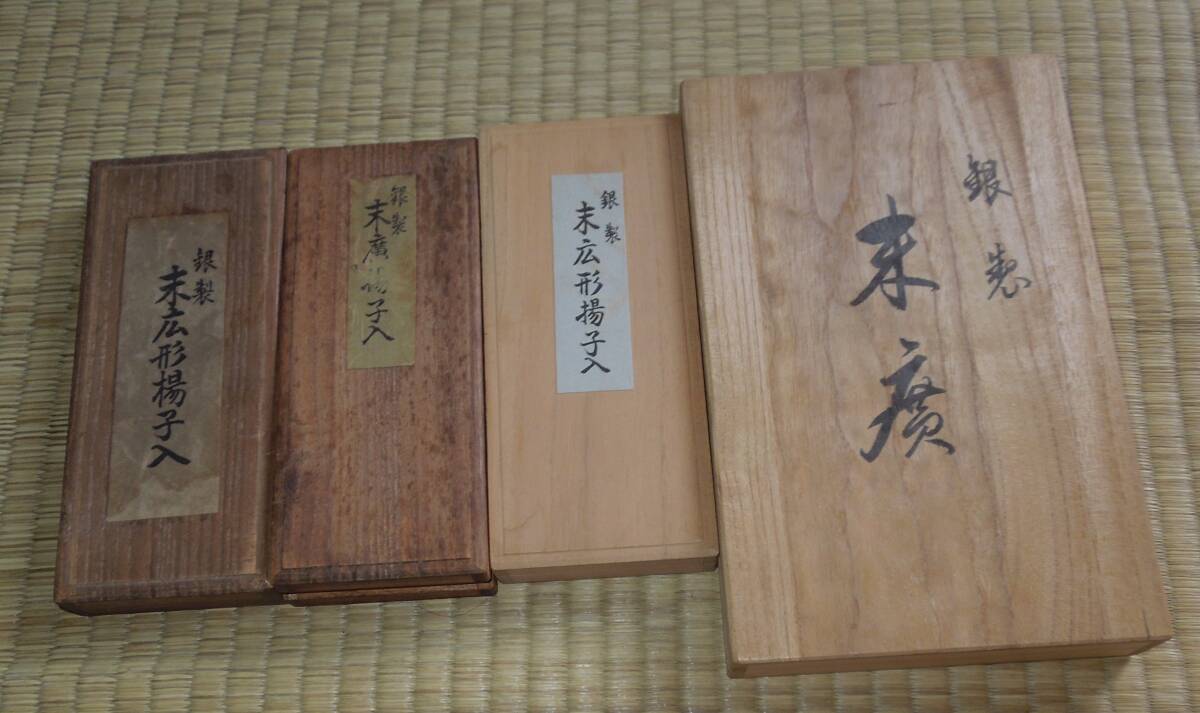 銀製
末広形楊子入
銀製
末廣
子入
銀製
末広形揚子入
銀製
末廣